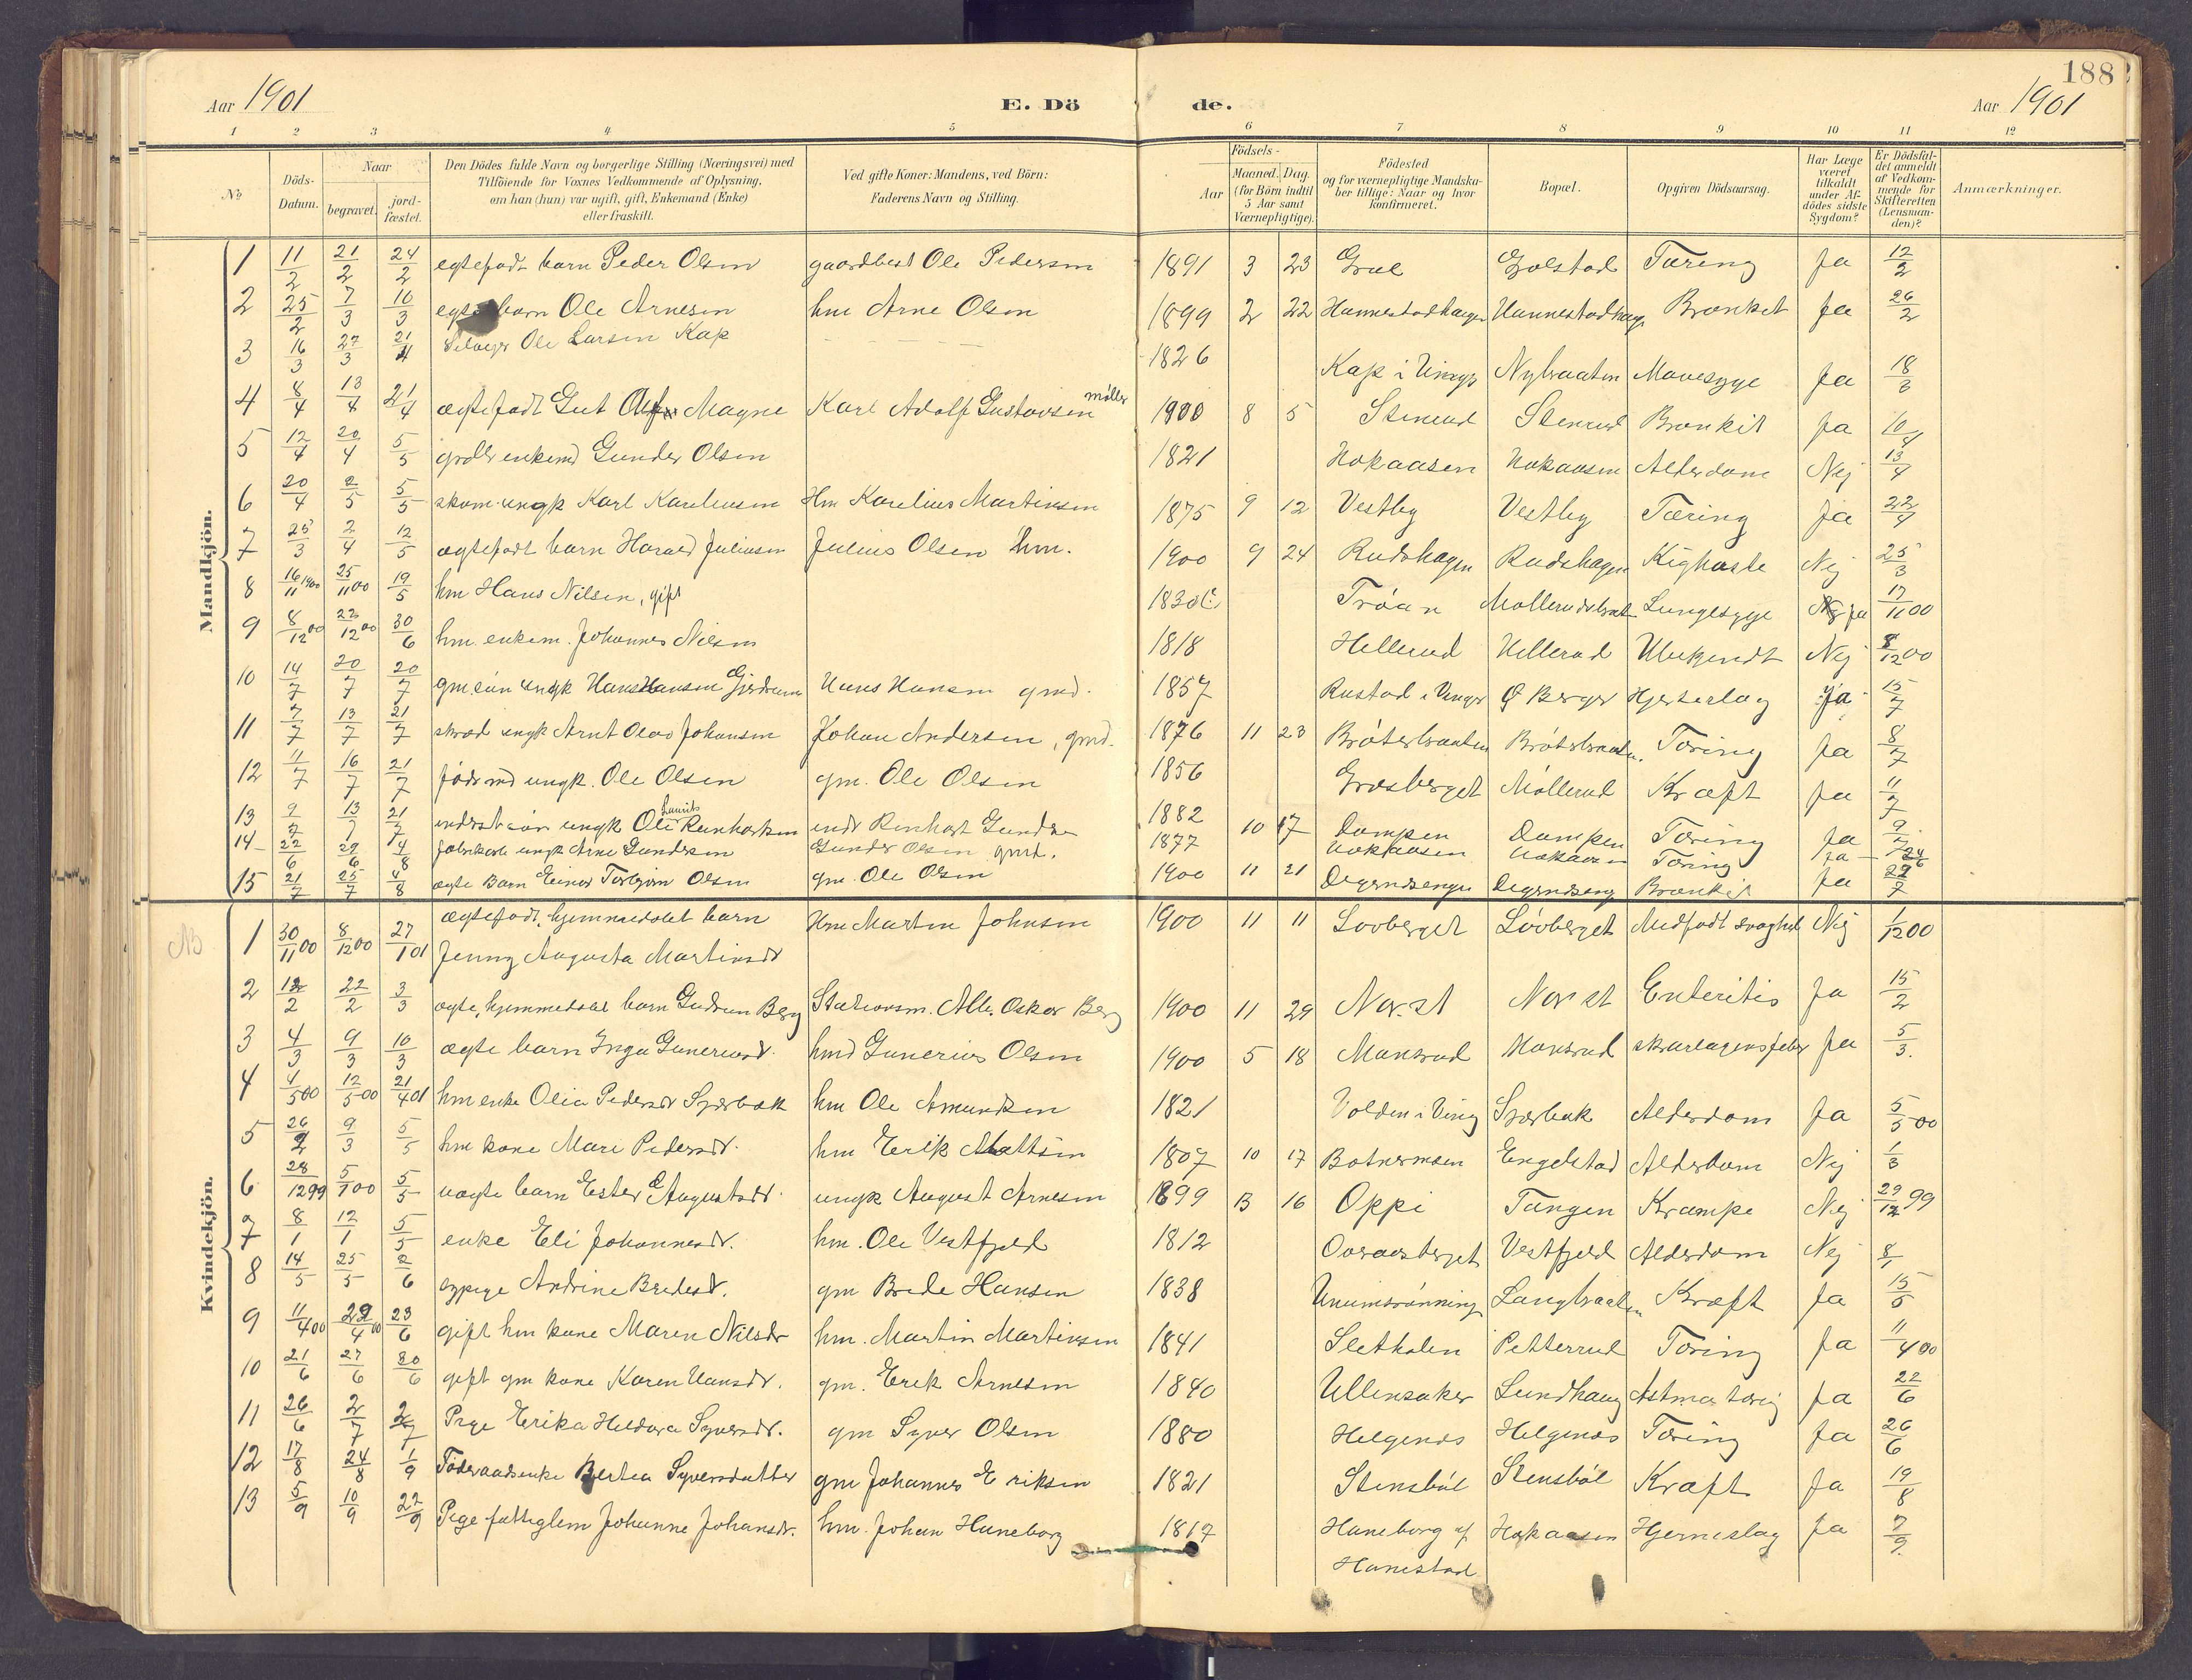 188
Aar 1901
E. Dö de.
Aar 1901
1 2 3 4 5 6 7 8 9 10 11 12
No
Döds-Datum.
Naar
begravet.
jord-fæstet.
Den Dödes fulde Navn og borgerlige Stilling (Næringsvei) med
Tilföiende for Voxnes Vedkommende af Oplysning,
om han (hun) var ugift, gift, Enkemand (Enke)
eller fraskilt.
Ved gifte Koner: Mandens, ved Börn:
Faderens Navn og Stilling.
Födsels-
Aar
Maaned. Dag.
(for Börn indtil
5 Aar samt
Værnepligtige).
Födested
og for værnepligtige Mandska-
ber tillige: Naar og hvor
konfirmeret.
Bopæl.
Opgiven Dödsaarsag.
Har Læge
været
tilkaldt
under Af-
dödes sidste
Sygdom?
Er Dödsfal-
det anmeldt
af Vedkom-
mende for
Skifteretten
(Lensman-
den)?
Anmærkninger.
Mandkjön.
1 11/2 21/2 24/2 egtefødt barn Peder Olsen gaardbest Ole Pedersen 1891 3 23 Grue Golstad Tæring Ja 12/2
2 25/2 7/3 10/3 barn Ole Arnesen hm Arne Olsen 1899 2 22 Hannestadhagen Hannestadhag Bronket Ja 26/2
3 16/3 27/3 21/4 Selveier Ole Larsen Kap 1826 Kap i Vinger Nybraaten Mavesyge Ja 18/3
4 8/4 13/4 21/4 ægtefødt Gut Magne Karl Adolf Gustavsen møller 1900 8 5 Stenrud Stenrud Bronkit Ja 10/4
5 12/4 20/4 5/5 enkemd Gunder Olsen 1821 Hokaasen Hokaasen Alderdom Nej 13/4
6 20/4 2/5 5/5 skom. ungk Karl Kareliusen Hm Karelius Martinsen 1875 9 12 Vestby Vestby Tæring Ja 22/4
7 25/3 2/4 12/5 ægtefødt barn Harald Juliusen Julius Olsen hm. 1900 9 24 Rudshagen Rudshagen Kighoste Nej 25/3
8 16/11 1900 25/11 00 19/5 hm Hans Nilsen, gift 1830 Trøan Møllerudsbraat Lungesyge Ja 17/11 00
9 8/12 00 22/12 00 30/6 hm enkem. Johannes Nilsen 1818 Hellerud Hellerud Ubekjendt Nej 8/12 00
10 14/7 20/7 20/7 gm søn ungk Hans Hansen Gjerdrum Hans Hansen gmd. 1857 Rustad i Vinger Ø Berger Hjerteslag Ja 15/7
11 7/7 13/7 21/7 skræd ungk Arnt Olao Johansen Johan Andersen, gmd. 1876 11 23 Bråterbraaten Bråterbraaten Tæring Ja 8/7
12 11/7 16/7 21/7 føderaad ungk. Ole Olsen gm. Ole Olsen 1856 Græsberget Møllerud Kræft Ja 11/7
13 9/7 13/7 21/7 inderst søn ungk Ole Lauits Reinhartsen inds Reinhart Gunder 1882 10 17 Dampen Dampen Tæring Ja 9/7
14 22/6 29/6 4/8 fabrikarb ungk Arne Gundersen Gunder Olsen gmd. 1877 Hokaasen Hokaasen Tæring Ja 24/6
15 21/7 25/7 4/8 ægte Barn Einar Torbjørn Olsen gm. Ole Olsen 1900 11 21 Degerndsengen Degerndseng Bronkit Ja 22/7
Kvindekjön.
NB
1 30/11 00 8/12 00 27/1 01 ægtefødt, hjemmedøbt barn Hm Martin Johnsen 1900 11 11 Lovberget Lövberget Medfødt svaghed Nej 1/12 00
Jenny Augusta Martinsdt
2 12/2 22/2 3/3 ægte, hjemmedøbt barn Gudrun Berg Stationsm. Alb. Oskar Berg 1900 11 29 Nor. st Nor st Enteritis Ja 15/2
3 4/3 9/3 10/3 ægte barn Inga Guneriusd. hmd Gunerius Olsen 1900 5 18 Mansrud Mansrud skarlagensfeber Ja 5/3
4 4/5 00 12/5 00 21/4 01 hm enke Olia Pedersdt Sjærbæk hm Ole Amundsen 1821 Volden i Ving Sjærbæk Alderdom Ja 5/5 00
5 26/2 9/3 5/5 hm kone Mari Pedersdt. hm Erik Mattsen 1807 10 17 Botnermoen Engelstad Alderdom Nej 1/3
6 28/12 99 5/1 00 5/5 uægte barn Ester E Augustsdt. ungk August Arnesen 1899 13 16 Oppi Tangen Krampe Nej 29/12 99
7 8/1 12/1 5/5 enke Eli Johannesdt. hm. Ole Vestfjeld 1812 Ovaasberget Vestfjeld Alderdom Nej 8/1
8 14/5 25/5 2/6 Andrine Bredesdt. gm Brede Hansen 1838 Unumsrønninge Langbraaten Kræft Ja 15/5
9 11/4 00 22/4 00 23/6 gift hm kone Maren Nilsdt hm. Martin Martinsen 1841 Sletholen Petterrud Tæring Ja 11/4 00
10 21/6 27/6 30/6 gift gm kone Karen Hansdt. gm. Erik Arnesen 1840 Ullensaker Lundhaug Astma tæring Ja 22/6
11 26/6 2/7 2/7 Pige Erika Heldora Syversdt. gm Syver Olsen 1880 Helgenæs Helgenæs Tæring Ja 26/6
12 17/8 24/8 1/9 Föderaadsenke Bertea Syversdatter gm Johannes Eriksen 1821 Stensböl Stensböl Kræft Ja 19/8
13 5/9 10/9 22/9 Pige fattiglem Johanne Johansdt. hm. Johan Haneborg 1817 Haneborg af Hokaasen Hjerneslag Ja 7/9
Hanestad